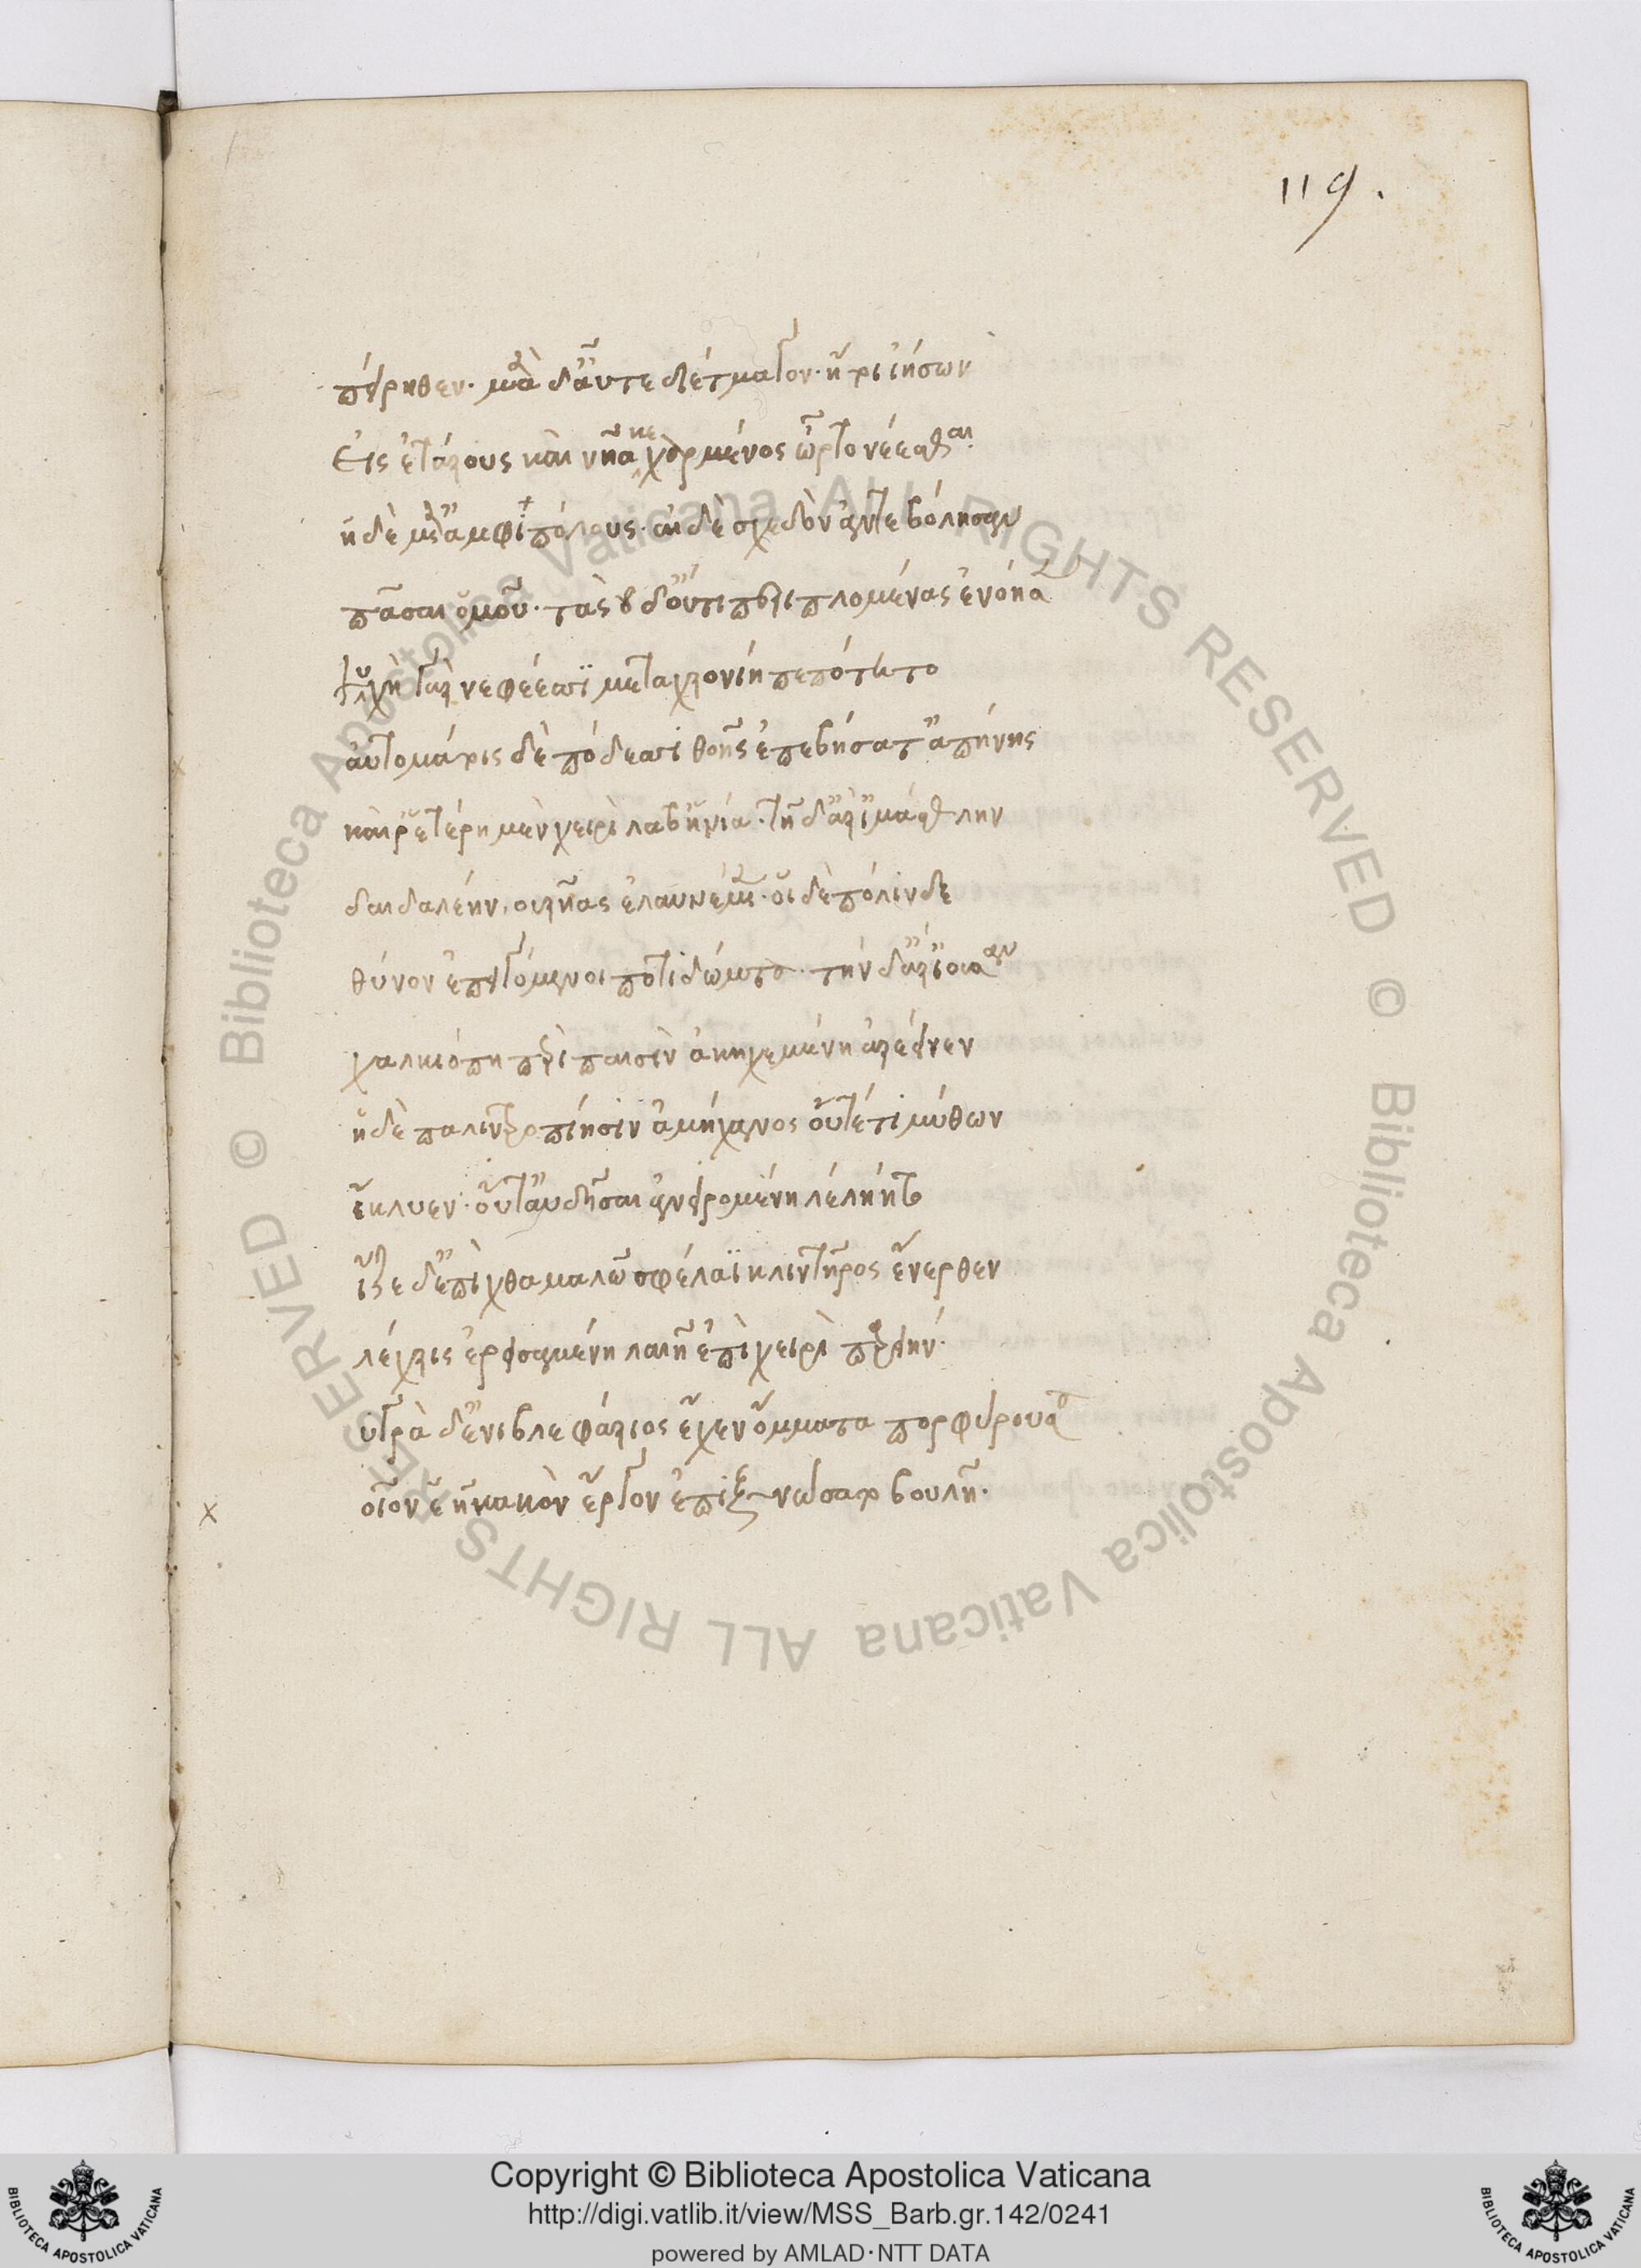 119.
πέρηθεν. μετὰ δ' αὖτε διέτμαγον· ἤτοι ἰήσων
Εἰς ἑτάρους καὶ νῆα κεχαρμένος ὦρτο νέεσθαι
ἡ δὲ μετ' ἀμφιπόλους. αἱ δὲ σχεδὸν ἀντεβόλησαν
πᾶσαι ὁμοῦ. τὰς δ' οὔτι περιπλομένας ἐνόησε
ψυχὴ γὰρ νεφέεσσι μεταχρονίη πεπότητο
αὐτομάτοις δὲ πόδεσσι θοῆς ἐπεβήσατ' ἀπήνης
καί ῥ' ἑτέρῃ μὲν χειρὶ λάβ' ἡνία. τῇ δ' ἄρ' ἱμάσθλην
δαιδαλέην, οὐρῆας ἐλαυνέμεν. οἱ δὲ πόλινδε
θύνον ἐπειγόμενοι ποτὶ δώματα. τὴν δ' ἄρ' ἰοῦσαν
χαλκιόπη περὶ παισὶν ἀκηχεμένη ἐρέεινεν
ἡ δὲ παλιντροπίῃσιν ἀμήχανος οὔτέ τι μύθων
ἔκλυεν. οὔτ' αὐδῆσαι ἀνειρομένῃ λελίητο
ἷζε δ' ἐπὶ χθαμαλῷ σφέλαϊ κλιντῆρος ἔνερθεν
λέχρις ἐρεισαμένη λαιῇ ἐπὶ χειρὶ παρειήν.
ὑγρὰ δ' ἐνὶ βλεφάροις ἔχεν ὄμματα πορφύρουσα
οἷον ἑῇ κακὸν ἔργον ἐπιξυνώσατο βουλῇ.
x
x
© Biblioteca Apostolica Vaticana ALL RIGHTS RESERVED © Biblioteca Apostolica Vaticana ALL RIGHTS RESERVED
Copyright © Biblioteca Apostolica Vaticana
http://digi.vatlib.it/view/MSS_Barb.gr.142/0241
powered by AMLAD·NTT DATA
BIBLIOTECA APOSTOLICA VATICANA
BIBLIOTECA APOSTOLICA VATICANA